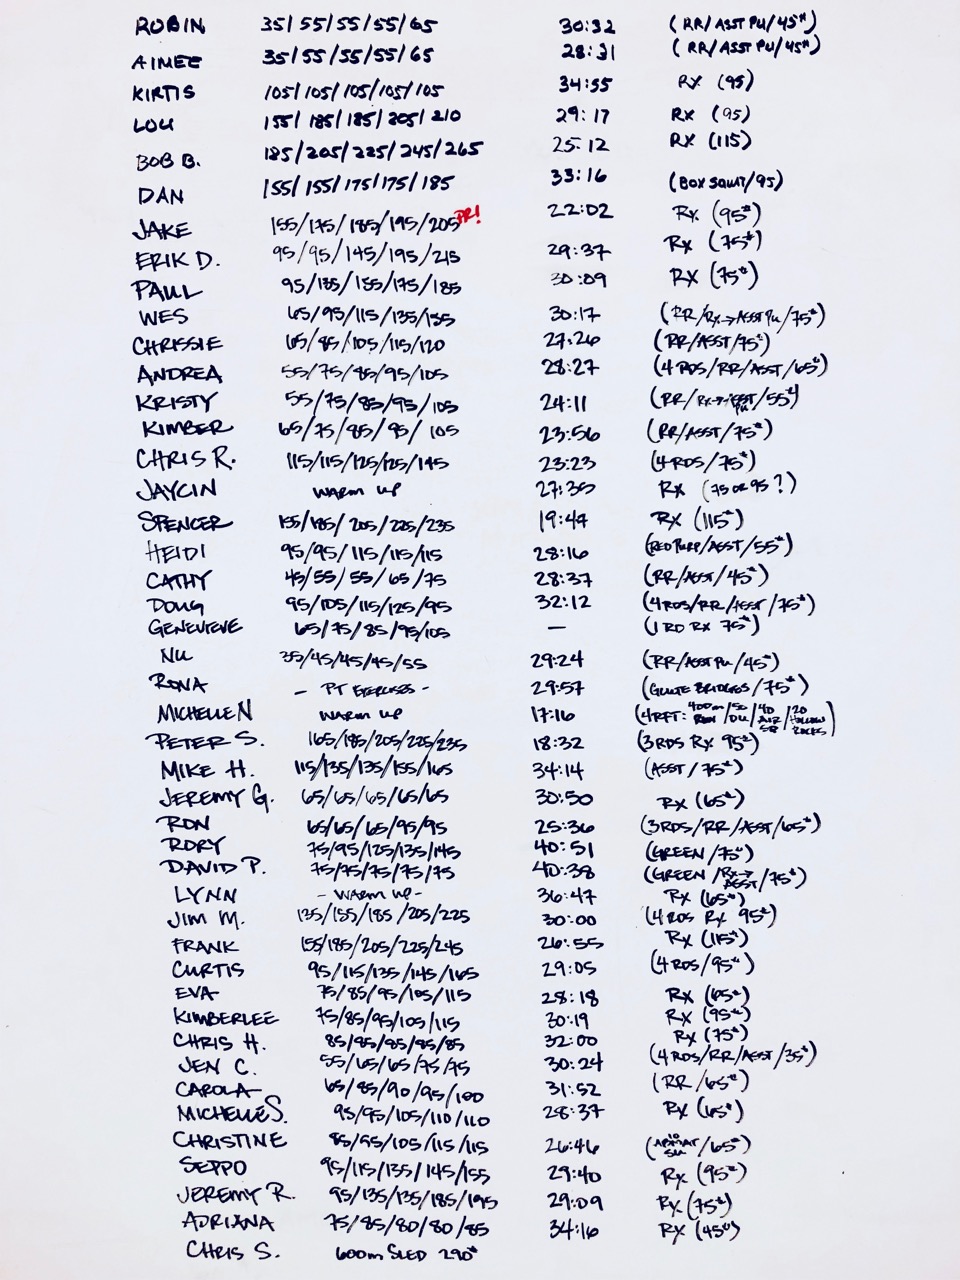 ROBIN 35/55/55/55/65 30:32 (RR/ASST PU/45#)
AIMEE 35/55/55/55/65 28:31 (RR/ASST PU/45#)
KIRTIS 105/105/105/105/105 34:55 RX (95)
LOU 155/185/185/205/210 29:17 RX (95)
BOB B. 185/205/225/245/265 25:12 RX (115)
DAN 155/155/175/175/185 33:16 (BOX SQUAT/95)
JAKE 155/175/185/195/205 PR! 22:02 RX (95#)
ERIK D. 95/95/145/195/215 29:37 RX (75#)
PAUL 95/135/155/175/185 30:09 RX (75#)
WES 65/95/115/135/155 30:17 (RR/RX→ASST PU/75#)
CHRISSIE 65/85/105/115/120 27:26 (RR/ASST/75#)
ANDREA 55/75/85/95/105 28:27 (4 RDS/RR/ASST/65#)
KRISTY 55/75/85/95/105 24:11 (RR/RX→ASST PU/55#)
KIMBER 65/75/85/95/105 23:56 (RR/ASST/75#)
CHRIS R. 115/115/125/125/145 23:23 (4 RDS/75#)
JAYCIN WARM UP 27:35 RX (75 OR 95?)
SPENCER 155/185/205/225/235 19:44 RX (115#)
HEIDI 95/95/115/115/115 28:16 (RED PURP/ASST/55#)
CATHY 45/55/55/65/75 28:37 (RR/ASST/45#)
DOUG 95/105/115/125/95 32:12 (4 RDS/RR/ASST/75#)
GENEVIEVE 65/75/85/95/105 — (1 RD RX 75#)
NU 35/45/45/45/55 29:24 (RR/ASST PU/45#)
RONA - PT EXERCISES - 29:57 (GLUTE BRIDGES/75#)
MICHELLE N WARM UP 17:16 (4RFT: 400m RUN/50 DU/40 AIR SQ/20 HOLLOW ROCKS)
PETER S. 165/185/205/225/235 18:32 (3 RDS RX 95#)
MIKE H. 115/135/135/155/165 34:14 (ASST/75#)
JEREMY G. 65/65/65/65/65 30:50 RX (65#)
RON 65/65/65/95/95 25:36 (3 RDS/RR/ASST/65#)
RORY 75/95/125/135/145 40:51 (GREEN/75#)
DAVID P. 75/75/75/75/75 40:38 (GREEN/RX→ASST/75#)
LYNN - WARM UP - 36:47 RX (65#)
JIM M. 135/155/185/205/225 30:00 (4 RDS RX 95#)
FRANK 155/185/205/225/245 26:55 RX (115#)
CURTIS 95/115/135/145/165 29:05 (4 RDS/95#)
EVA 75/85/95/105/115 28:18 RX (65#)
KIMBERLEE 75/85/95/105/115 30:19 RX (95#)
CHRIS H. 85/85/85/85/85 32:00 RX (75#)
JEN C. 55/65/65/75/75 30:24 (4 RDS/RR/ASST/35#)
CAROLA 65/85/90/95/100 31:52 (RR/65#)
MICHELLE S. 95/95/105/110/110 28:37 RX (65#)
CHRISTINE 85/95/105/115/115 26:46 (/65#)
SEPPO 95/115/135/145/155 29:40 RX (95#)
JEREMY R. 95/135/135/185/195 29:09 RX (75#)
ADRIANA 75/85/80/80/85 34:16 RX (45#)
CHRIS S. 600m SLED 290#